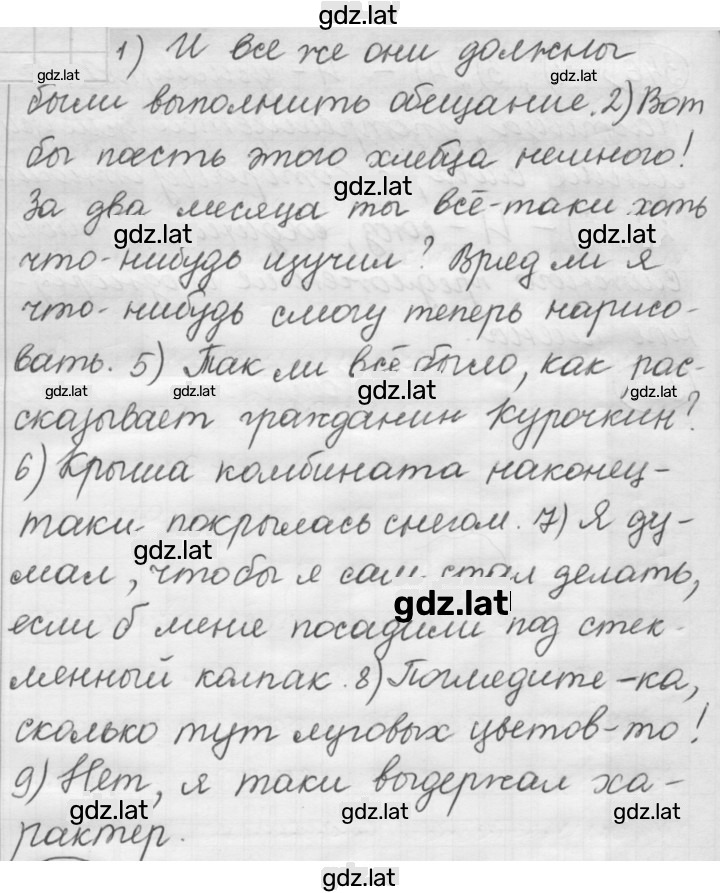 gdz.lat
1) И все же они должны
gdz.lat gdz.lat
были выполнить обещание. 2) Вот
бы поесть этого хлебца немного!
gdz.lat
За два месяца ты всё-таки хоть
gdz.lat gdz.lat
что-нибудь изучил? Вряд ли я
что-нибудь смогу теперь нарисо-
вать. 5) Так ли всё было, как рас-
gdz.lat gdz.lat gdz.lat gdz.lat
сказывает гражданин Курочкин?
6) Крыша комбината наконец-
таки покрылась снегом. 7) Я ду-
gdz.lat
мал, что бы я сам стал делать,
gdz.lat
если б меня посадили под стек-
менный колпак. 8) Поглядите-ка,
сколько тут луговых цветов-то!
9) Нет, я таки выдержал ха-
gdz.lat gdz.lat gdz.lat
рактер.
gdz.lat